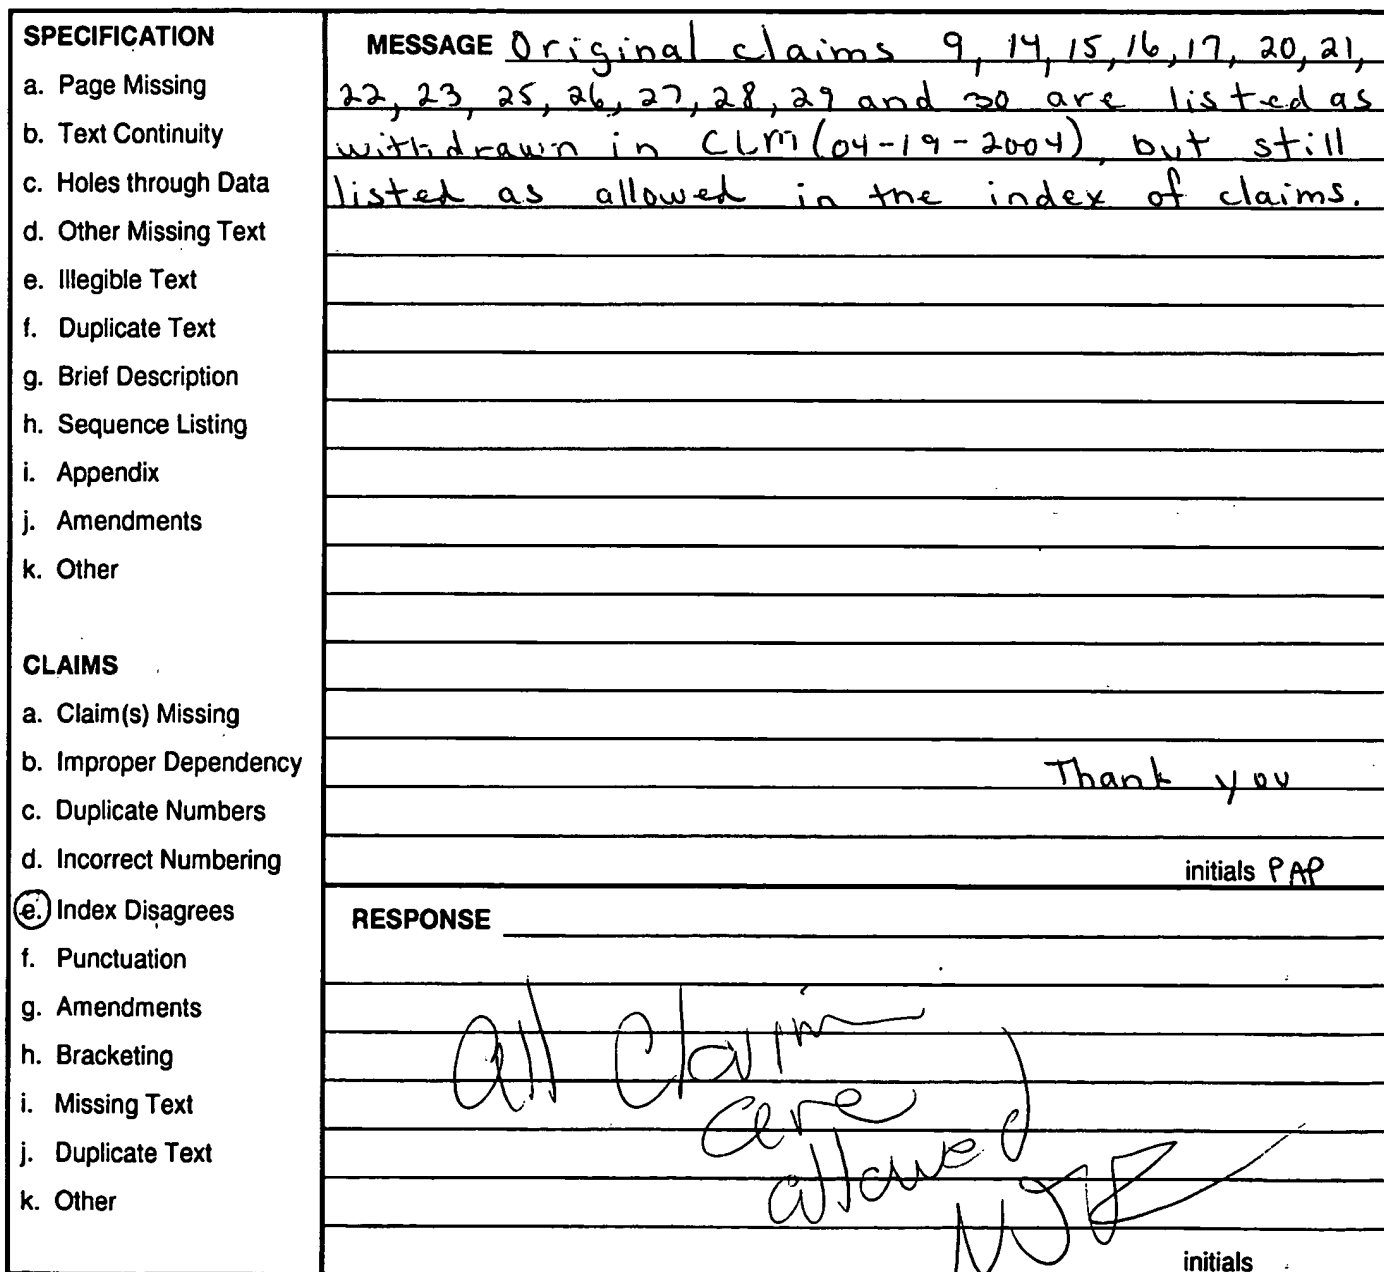 SPECIFICATION
a. Page Missing
b. Text Continuity
c. Holes through Data
d. Other Missing Text
e. Illegible Text
f. Duplicate Text
g. Brief Description
h. Sequence Listing
i. Appendix
j. Amendments
k. Other
CLAIMS
a. Claim(s) Missing
b. Improper Dependency
c. Duplicate Numbers
d. Incorrect Numbering
e. Index Disagrees
f. Punctuation
g. Amendments
h. Bracketing
i. Missing Text
j. Duplicate Text
k. Other
MESSAGE Original claims 9, 14, 15, 16, 17, 20, 21,
22, 23, 25, 26, 27, 28, 29 and 30 are listed as
withdrawn in CLM (04-19-2004), but still
listed as allowed in the index of claims.
Thank you
initials PAP
RESPONSE
all claim
are
allowed
initials